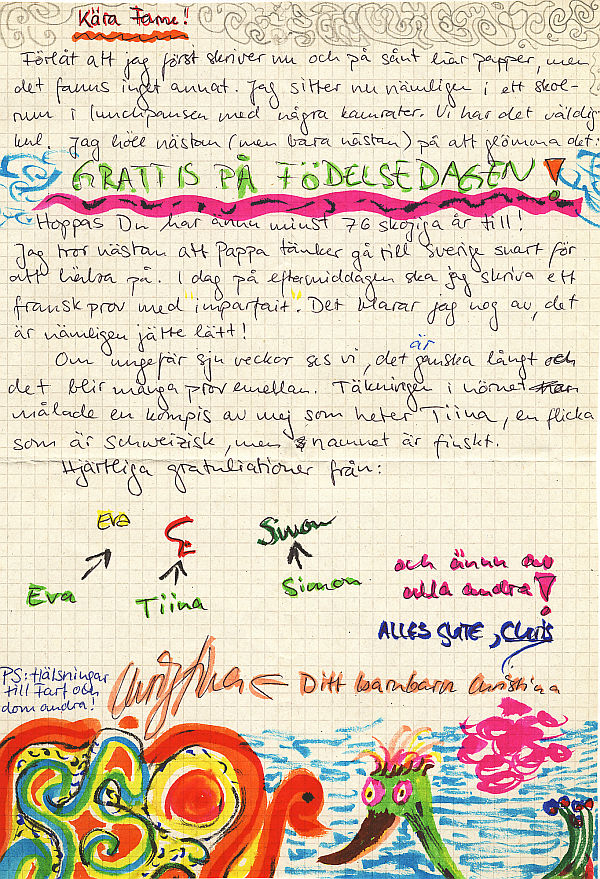 Kära Farmor!!
Förlåt att jag först skriver nu och på sånt här papper, men
det fanns inget annat. Jag sitter nu nämligen i ett skol-
rum i lunchpausen med några kamrater. Vi har det väldig
kul. Jag höll nästan (men bara nästan) på att glömma det:
GRATTIS PÅ FÖDELSEDAGEN!
Hoppas Du har ännu minst 76 skojiga år till!
Jag tror nästan att Pappa tänker gå till Sverige snart för
att hälsa på. I dag på eftermiddagen ska jag skriva ett
fransk prov med "imparfait". Det klarar jag nog av, det
är nämligen jätte lätt!
Om ungefär sju veckor ses vi, det är ganska långt och
det blir många prov emellan. Täkningen i hörnet
målade en kompis av mej som heter Tiina, en flicka
som är Schweizisk, men namnet är finskt.
Hjärtliga gratulationer från:
Eva Simon
Eva Tiina Simon
och ännu av
alla andra!
ALLES GUTE, Chris
PS: Hälsningar
till Farf och
dom andra!
Christina ← Ditt barnbarn Christina